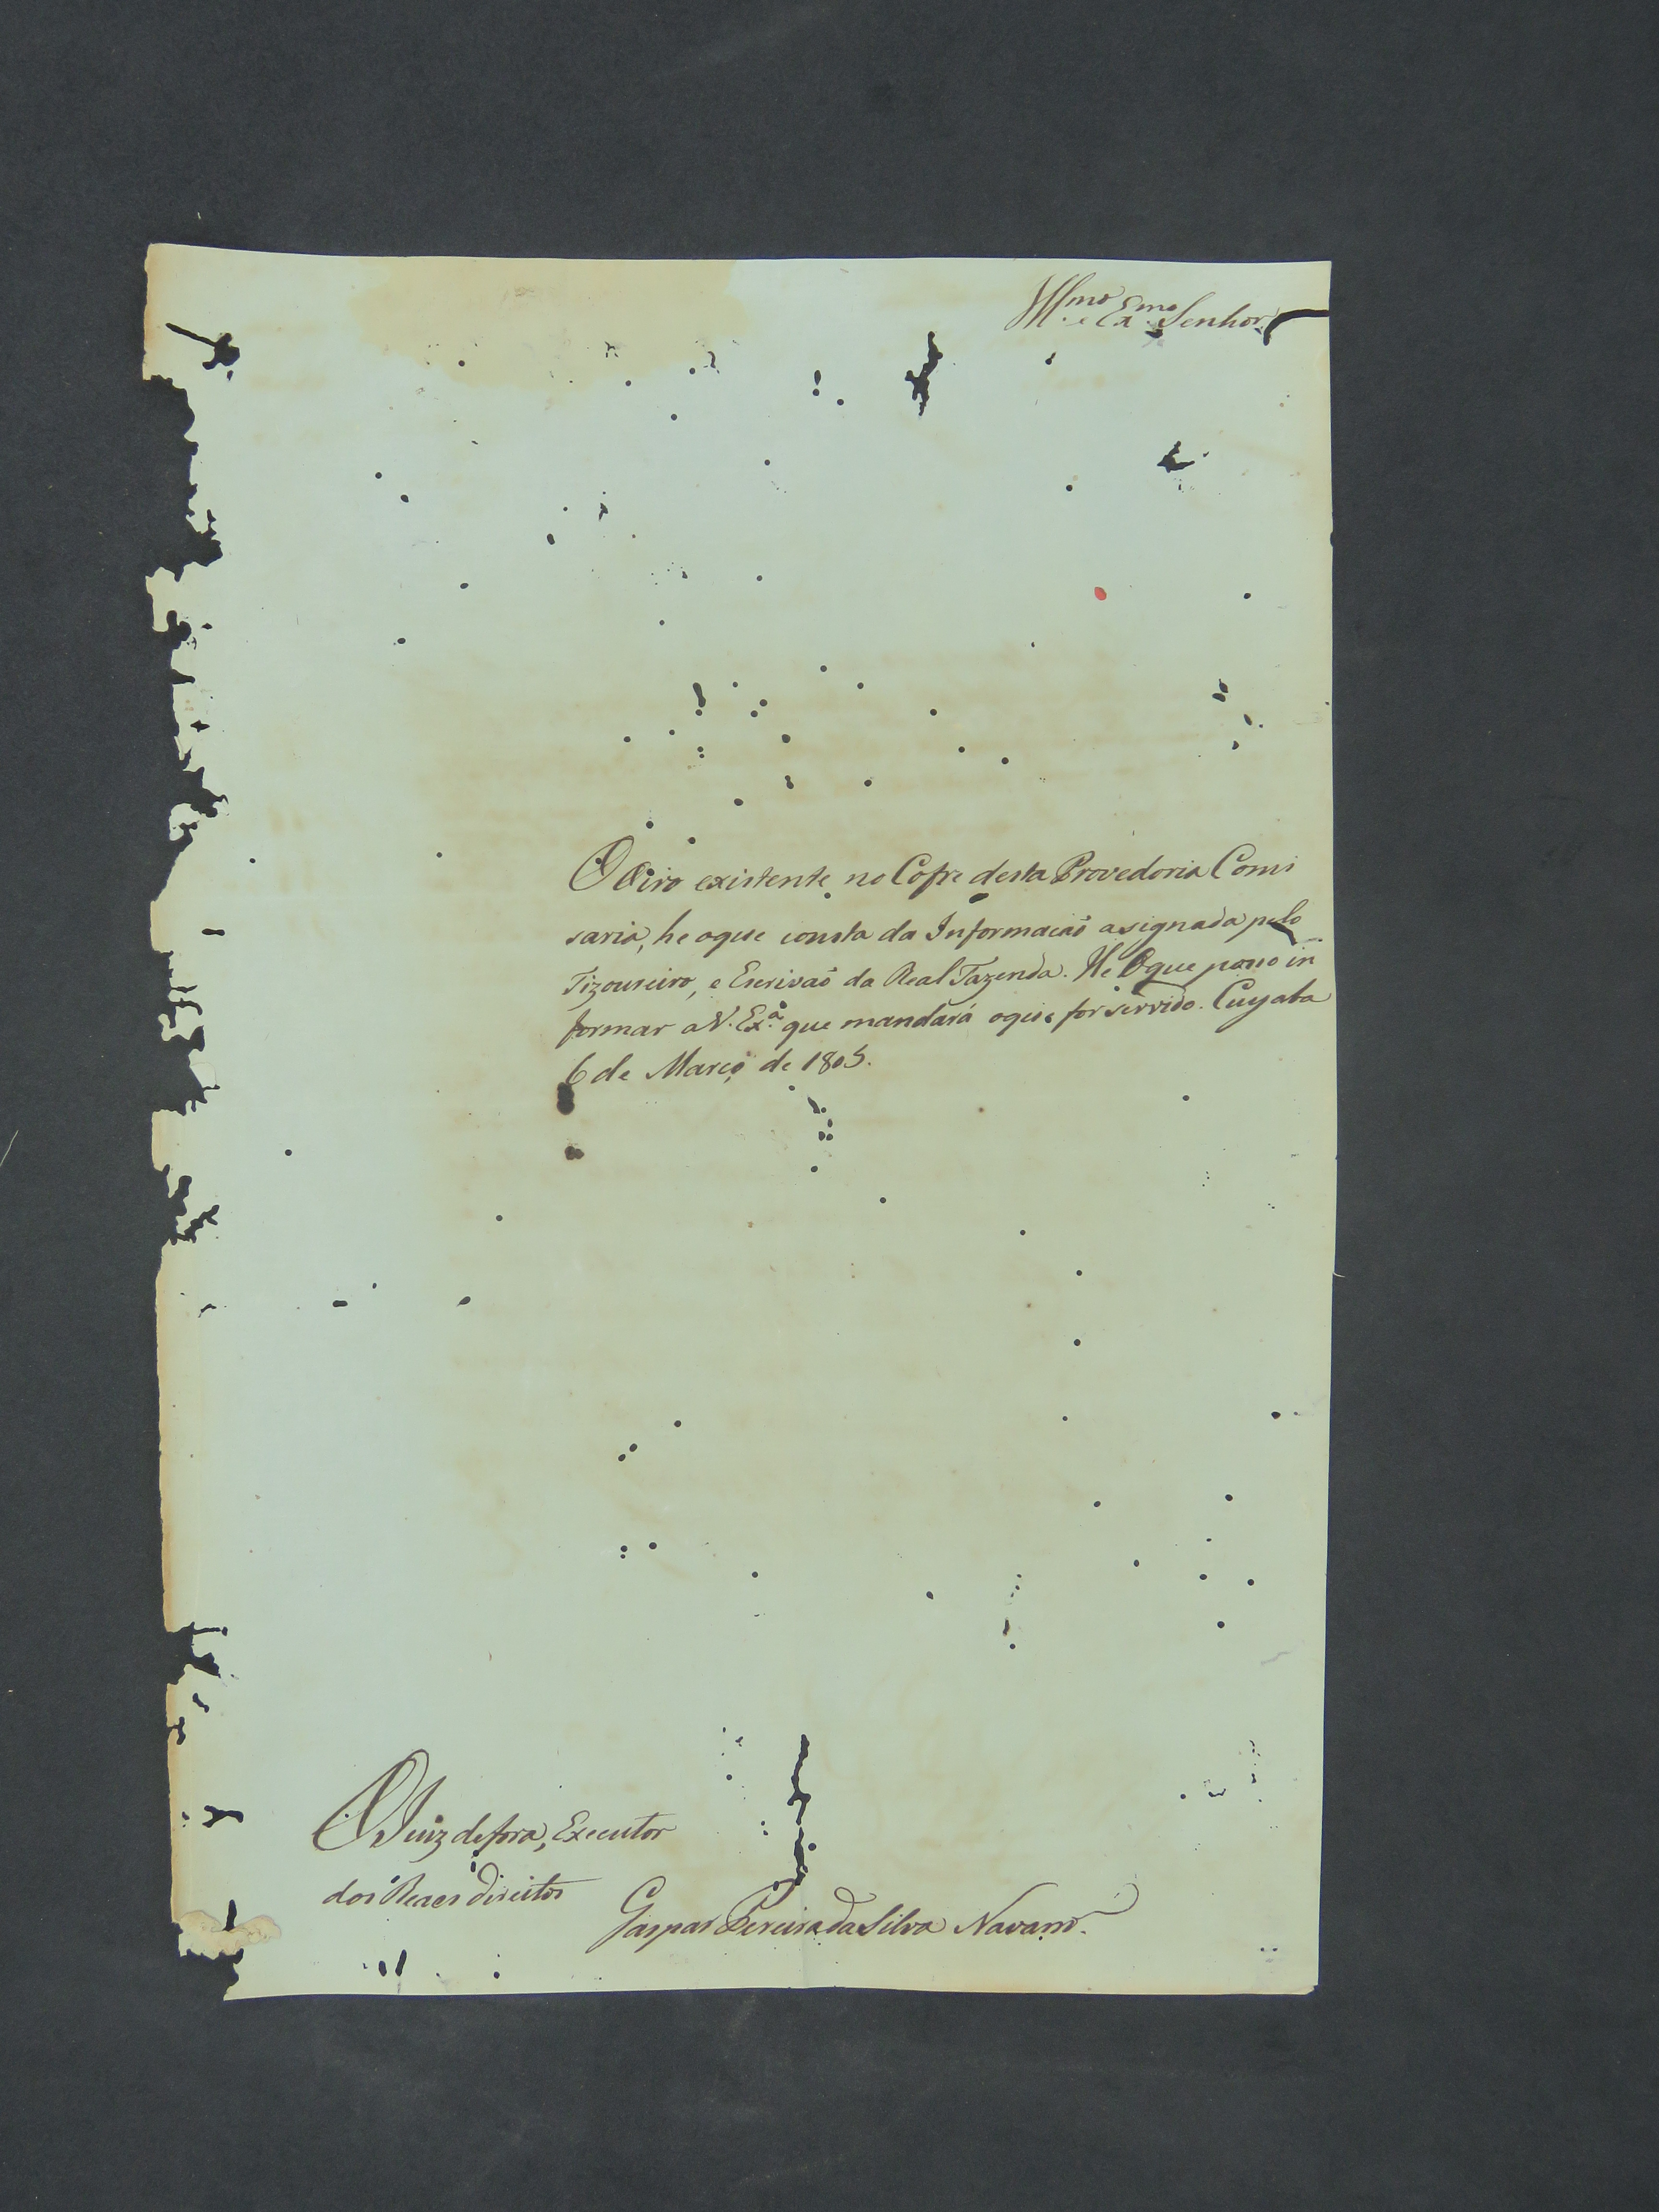 Ill.mo e Ex.mo Senhor
O Oiro existente no Cofre desta Provedoria Comi
saria, he oque consta da Informacaõ asignada pelo
Tizoureiro, e Escrivaõ da Real Fazenda. He Oque posso in
formar a V. Ex.a que mandará oque for servido. Cuyaba
6 de Março de 1805.
O Juiz de fora, Executor
dos Reaes direitos
Gaspar Pereira da Silva Navarro.